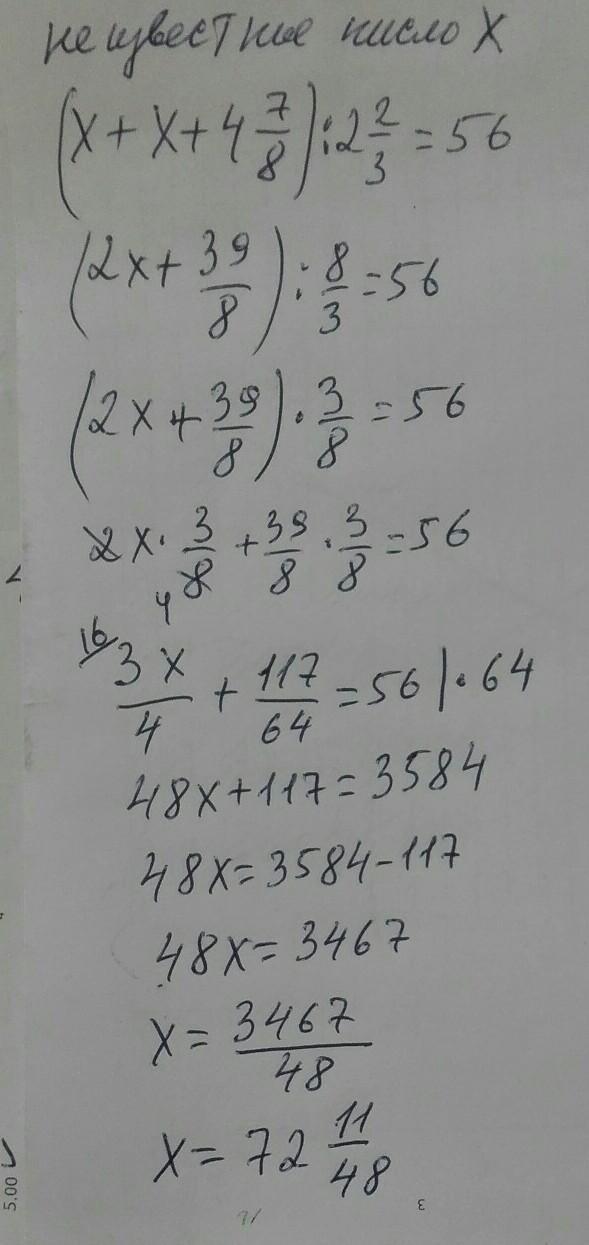 неизвестное число X
(x + x + 4 7/8) : 2 2/3 = 56
(2x + 39/8) : 8/3 = 56
(2x + 39/8) · 3/8 = 56
2x · 3/8 + 39/8 · 3/8 = 56
4
16
3x/4 + 117/64 = 56 | · 64
48x + 117 = 3584
48x = 3584 - 117
48x = 3467
x = 3467/48
x = 72 11/48
5.00